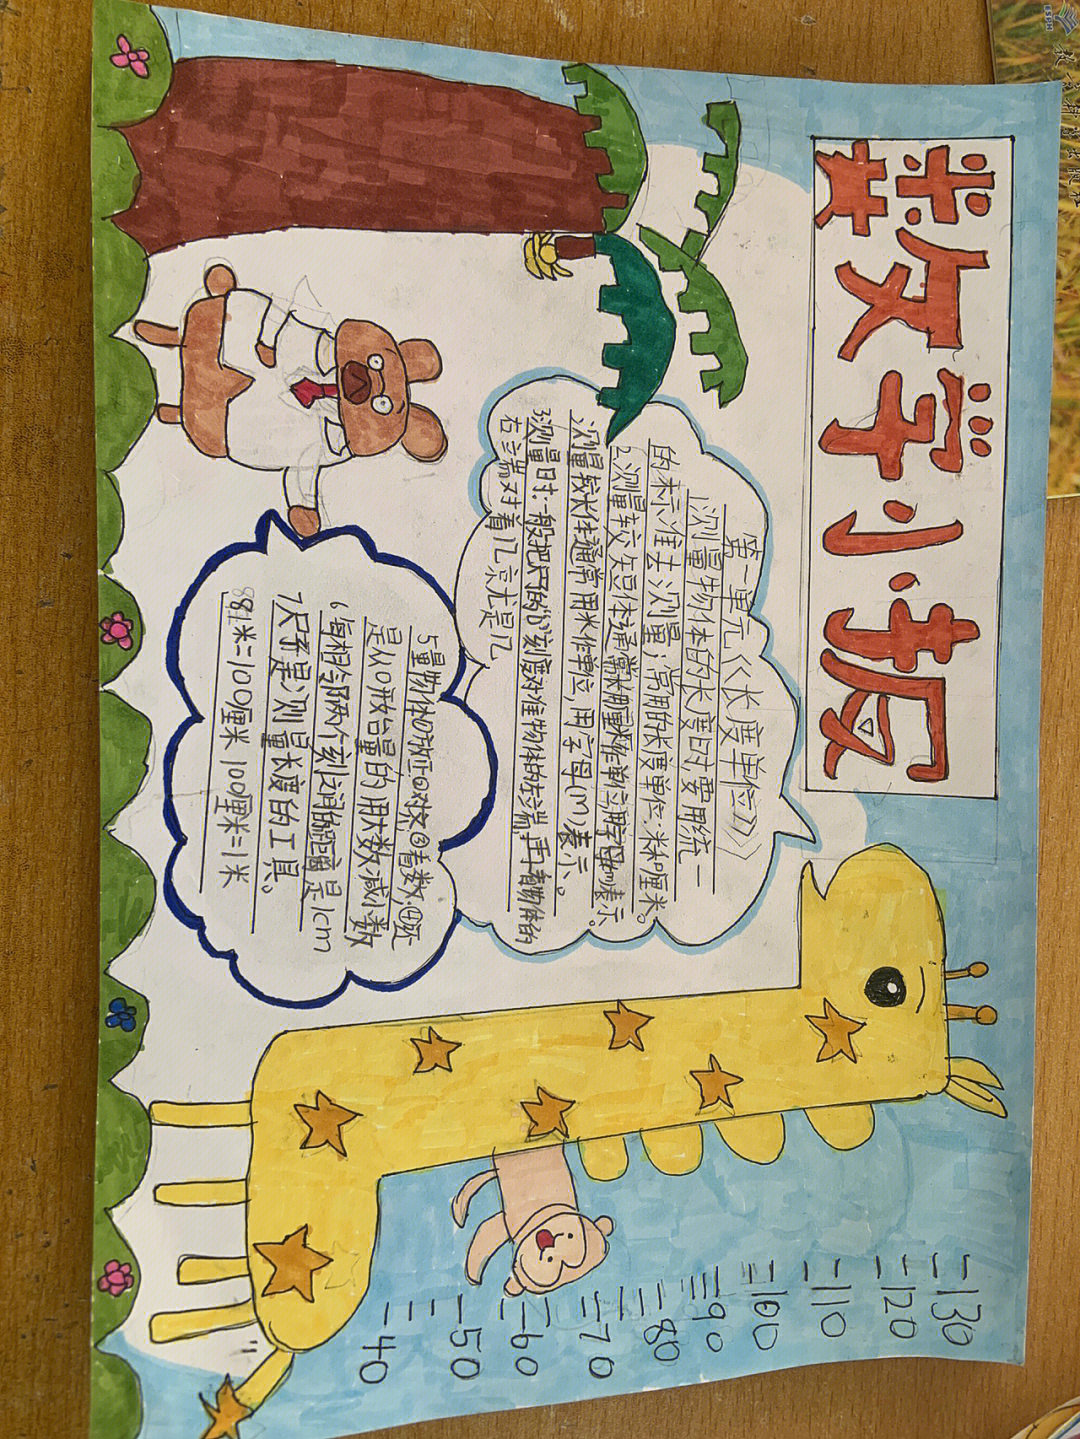 数学小报
第一单元《长度单位》
1.测量物体的长度时要用统一
的标准去测量;常用的长度单位:米和厘米。
2.测量较短物体通常用厘米作单位,用字母cm表示。
测量较长物体通常用米作单位,用字母(m)表示。
3.测量时:一般把尺子的"0"刻度对准物体的左端,再看物体的
右端对着几就是几
5.量物体
是从0开始量的用大数减小数
6.每相邻两个刻之间的距离是1cm
7尺子是测量长度的工具。
8.1米=100厘米 100厘米=1米
130
120
110
100
90
80
70
60
50
40